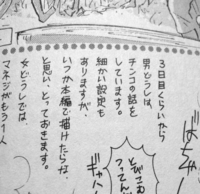 3日目くらいから
男どうしは、
チンコの話を
しています。
細かい設定も
ありますが、
いつか本編で描けたらな、
と思い、とっておきます。
女どうしでは
マネジがもう1人